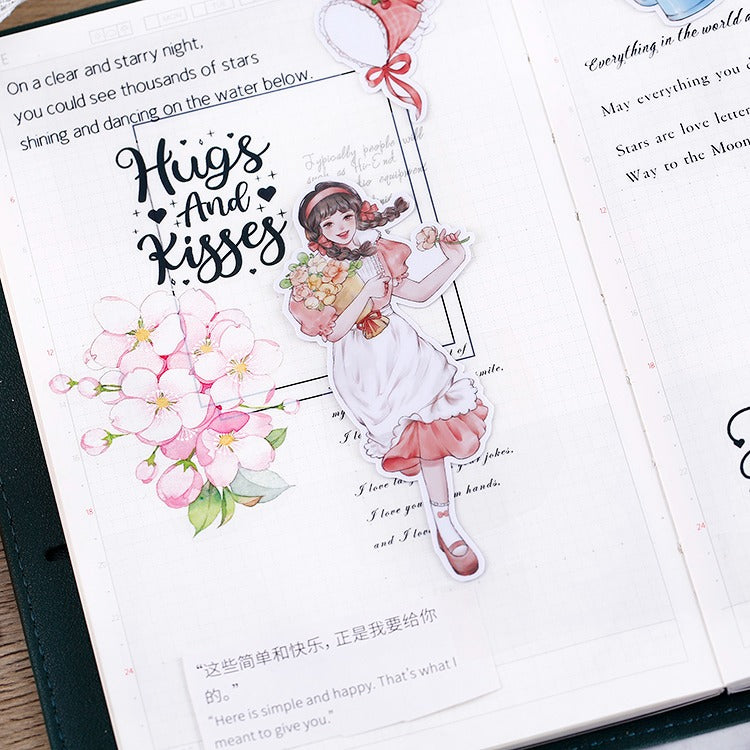 MON
TUE
On a clear and starry night,
you could see thousands of stars
shining and dancing on the water below.
Hugs
And
Kisses
Typically people will
such as Hi-End
equipment
t of
smile.
my
I lo
your jokes.
I love
I love you
m hands.
and I love
“这些简单和快乐，正是我要给你
的。”
“Here is simple and happy. That's what I
meant to give you.”
Everything in the world a
May everything you d
Stars are love letter
Way to the Moon
6
12
18
24
6
12
18
24